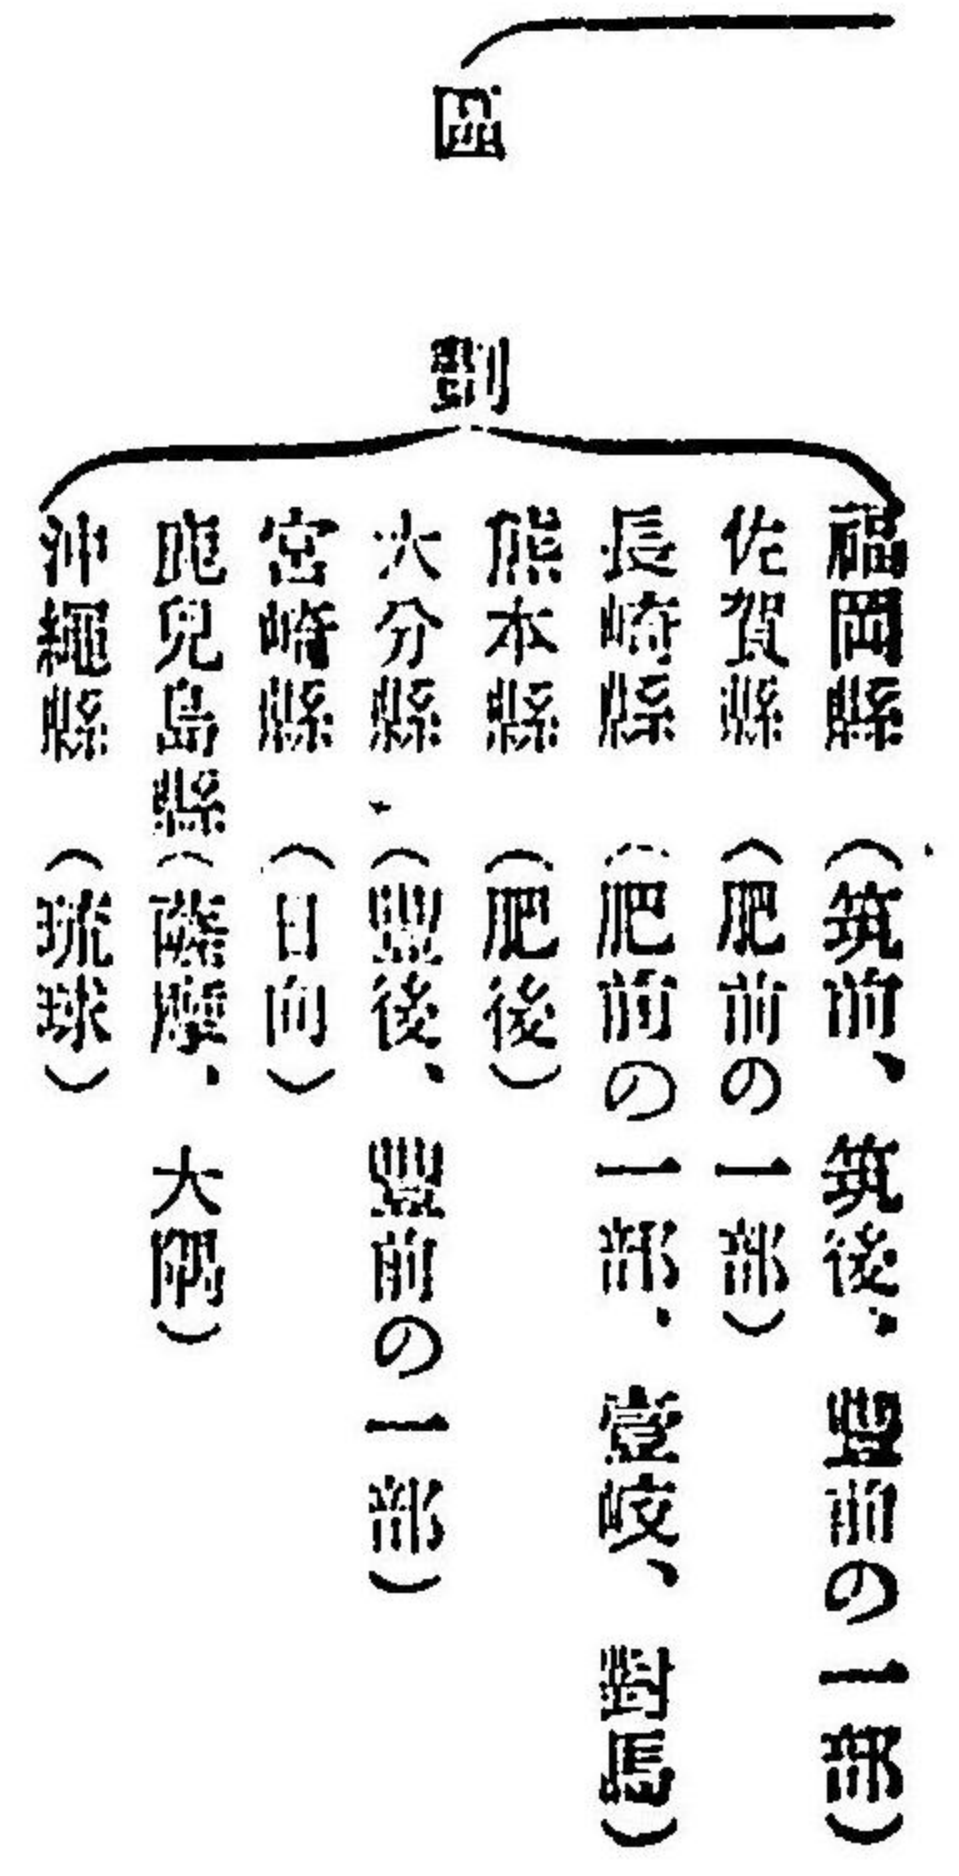 區劃
福岡縣（筑前、筑後、豐前の一部）
佐賀縣（肥前の一部）
長崎縣（肥前の一部、壹岐、對馬）
熊本縣（肥後）
大分縣（豐後、豐前の一部）
宮崎縣（日向）
鹿兒島縣（薩摩、大隅）
沖繩縣（琉球）